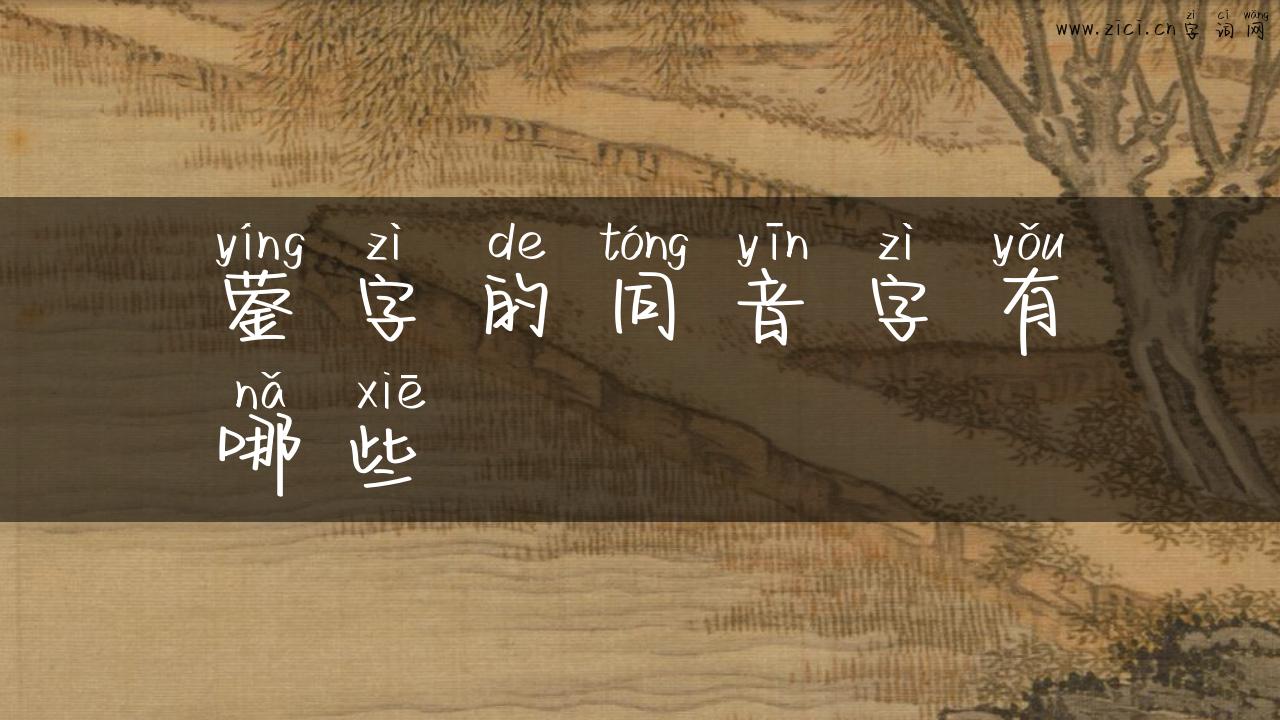 zì cí wǎng
www.zici.cn 字 词 网
yíng zì de tóng yīn zì yǒu
蓥 字 的 同 音 字 有
nǎ xiē
哪 些